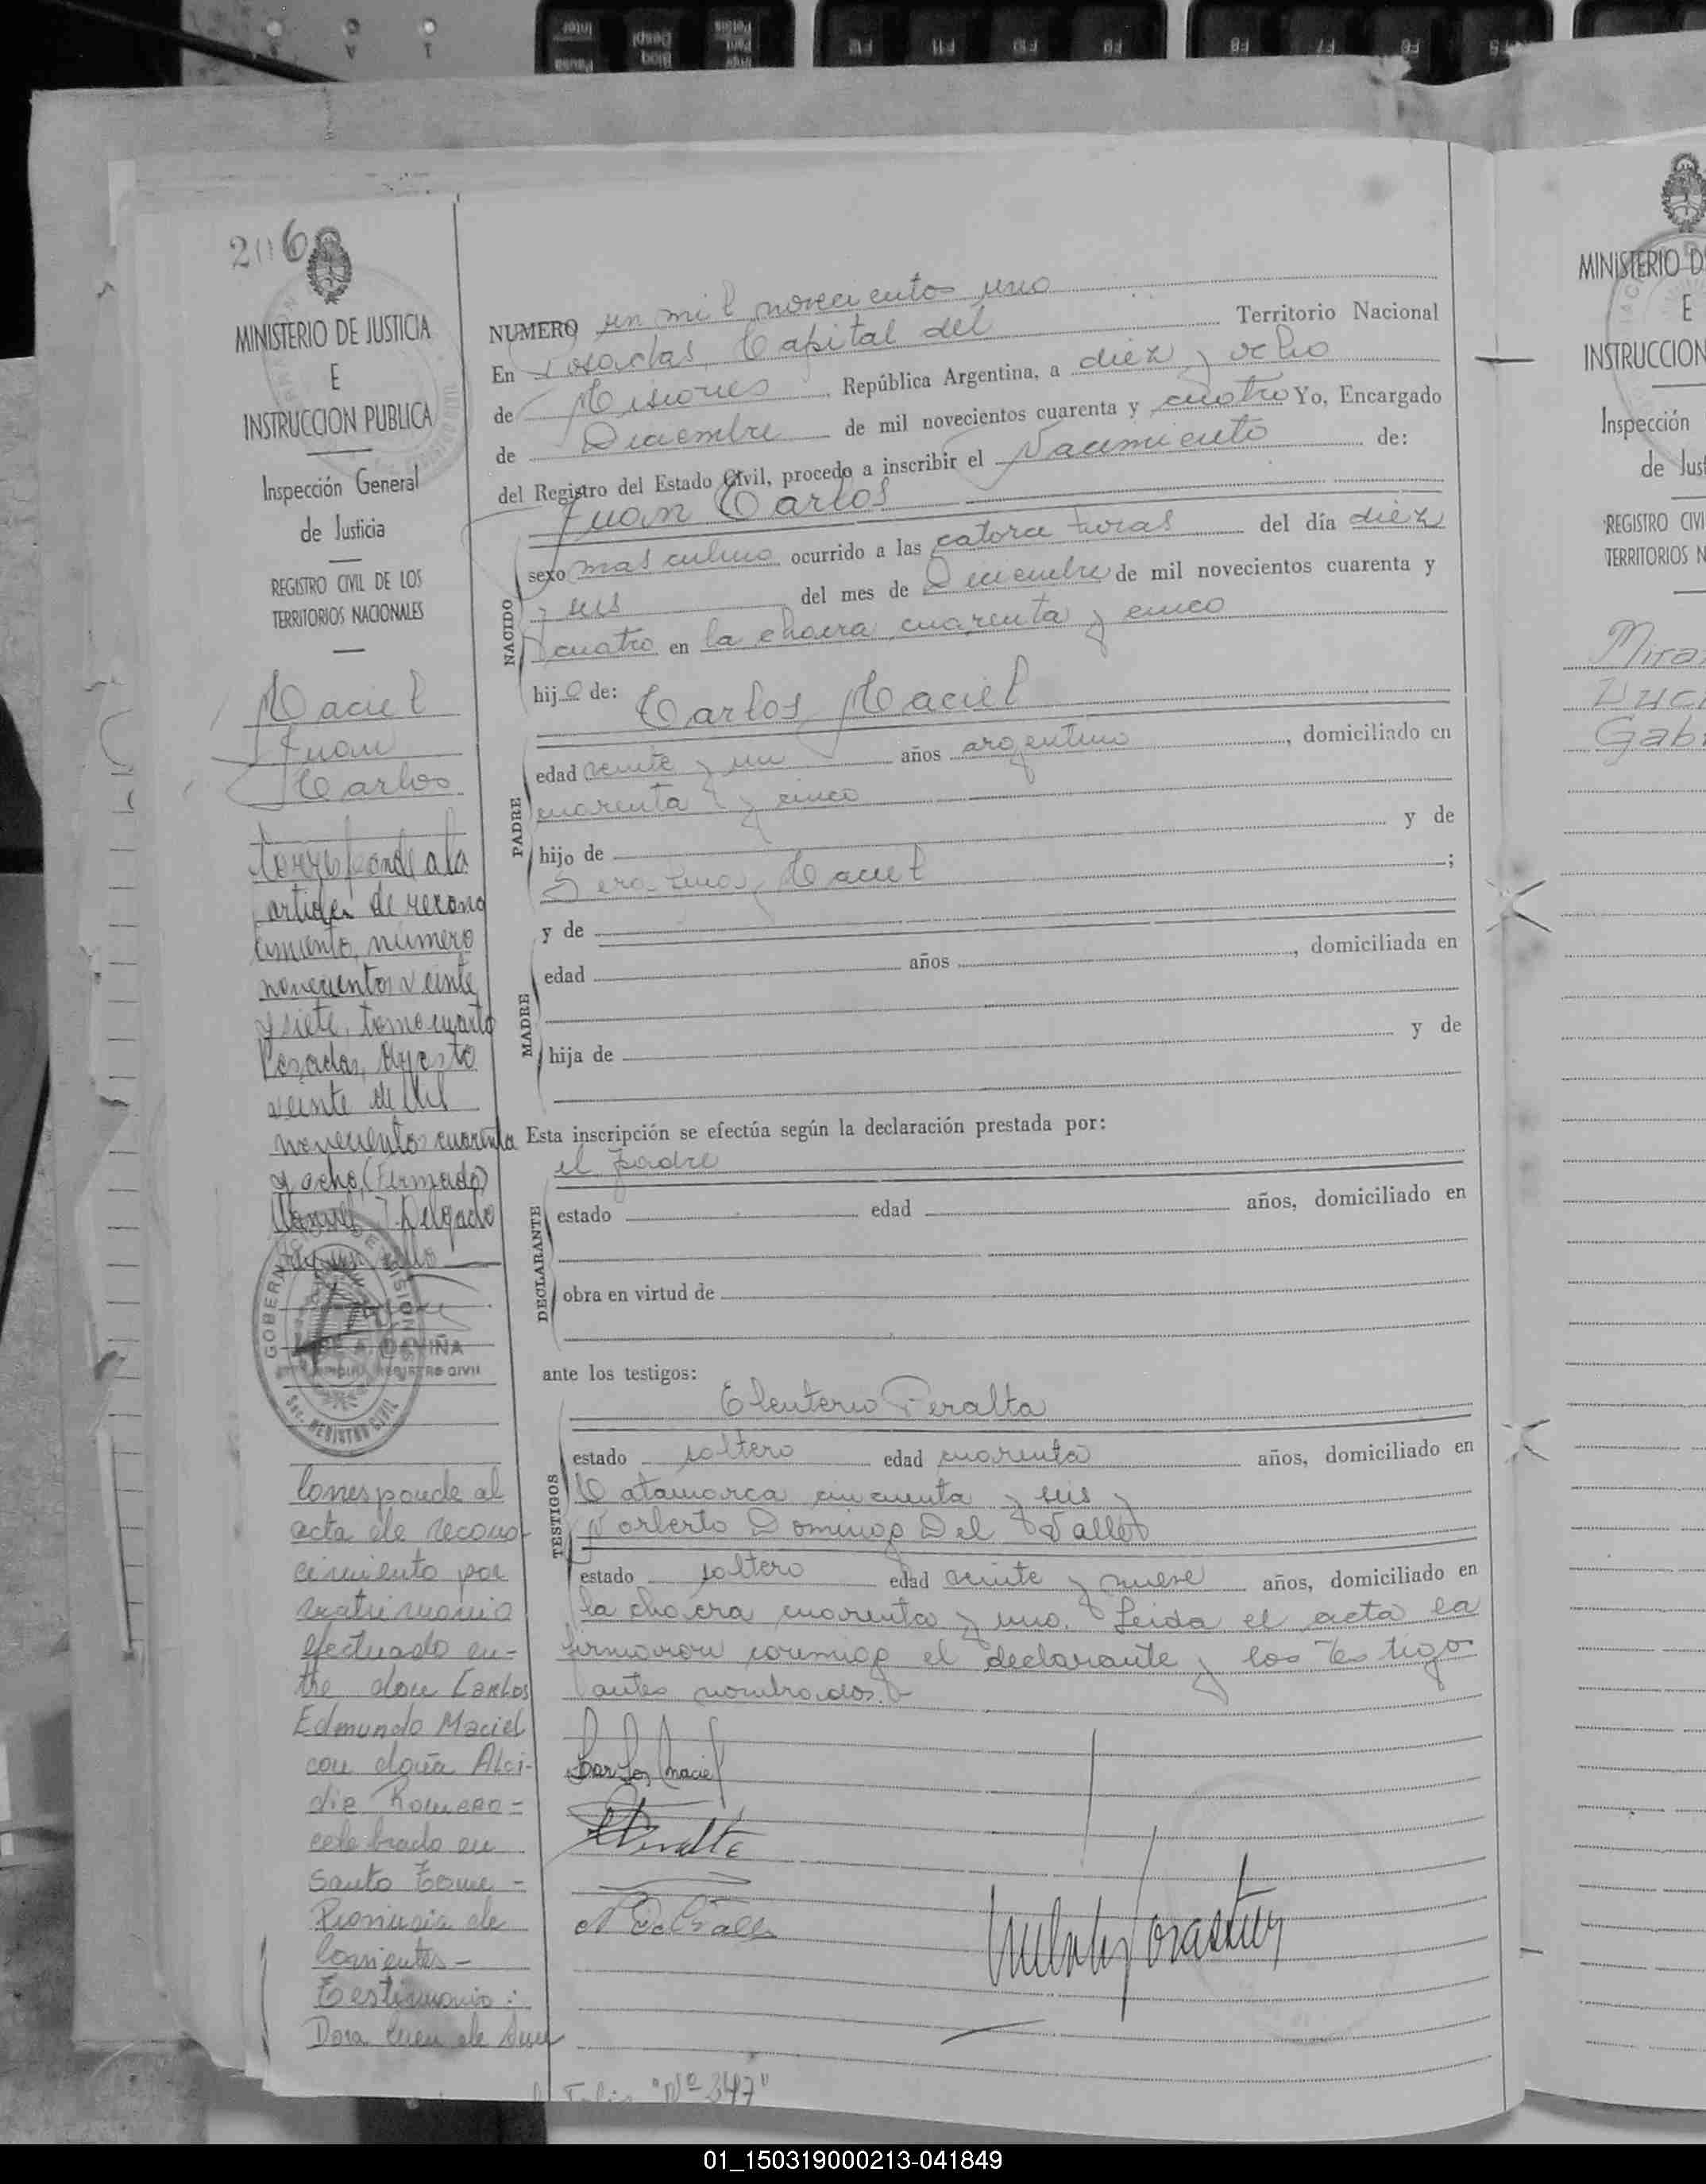 206
MINISTERIO DE JUSTICIA
E
INSTRUCCION PUBLICA
Inspección General
de Justicia
REGISTRO CIVIL DE LOS
TERRITORIOS NACIONALES
Maciel
Juan
Carlos
Corresponde a la
partida de recono
cimiento, numero
novecientos veinte
y siete, tomo cuarto
Posadas, Agosto
veinte de mil
novecientos cuarenta
y ocho, (Firmado)
Delgado
GOBERNACION DE MISIONES
REGISTRO CIVIL
Corresponde al
acta de recono-
cimiento por
matrimonio
efectuado en-
tre don Carlos
Edmundo Maciel
con doña Alci-
die Romero -
celebrado en
Santo Tome -
Provincia de
Corrientes -
Testimonio :
Dora
NUMERO un mil novecientos uno
En Posadas, Capital del Territorio Nacional
de Misiones, República Argentina, a diez y ocho
de Diciembre de mil novecientos cuarenta y cuatro Yo, Encargado
del Registro del Estado Civil, procedo a inscribir el Nacimiento de:
Juan Carlos
NACIDO
sexo masculino ocurrido a las catorce horas del día diez
y seis del mes de Diciembre de mil novecientos cuarenta y
cuatro en la chacra cuarenta y cinco
hijo de: Carlos Maciel
PADRE
edad veinte y un años argentino, domiciliado en
cuarenta y cinco
hijo de y de
Maciel ;
y de
MADRE
edad años , domiciliada en
hija de y de
Esta inscripción se efectúa según la declaración prestada por:
el padre
DECLARANTE
estado edad años, domiciliado en
obra en virtud de
ante los testigos:
Eleuterio Peralta
TESTIGOS
estado soltero edad cuarenta años, domiciliado en
Catamarca cincuenta y seis y
Norberto Domingo Del Valle
estado soltero edad veinte y nueve años, domiciliado en
la chacra cuarenta y uno. Leida el acta la
firmaron conmigo el declarante y los testigos
antes nombrados.
Carlos Maciel
EPeralta
N DelValle
Folio "Nº 347"
MINISTERIO D
E
INSTRUCCION
Inspección
de Jus
REGISTRO CIVI
TERRITORIOS N
01_150319000213-041849